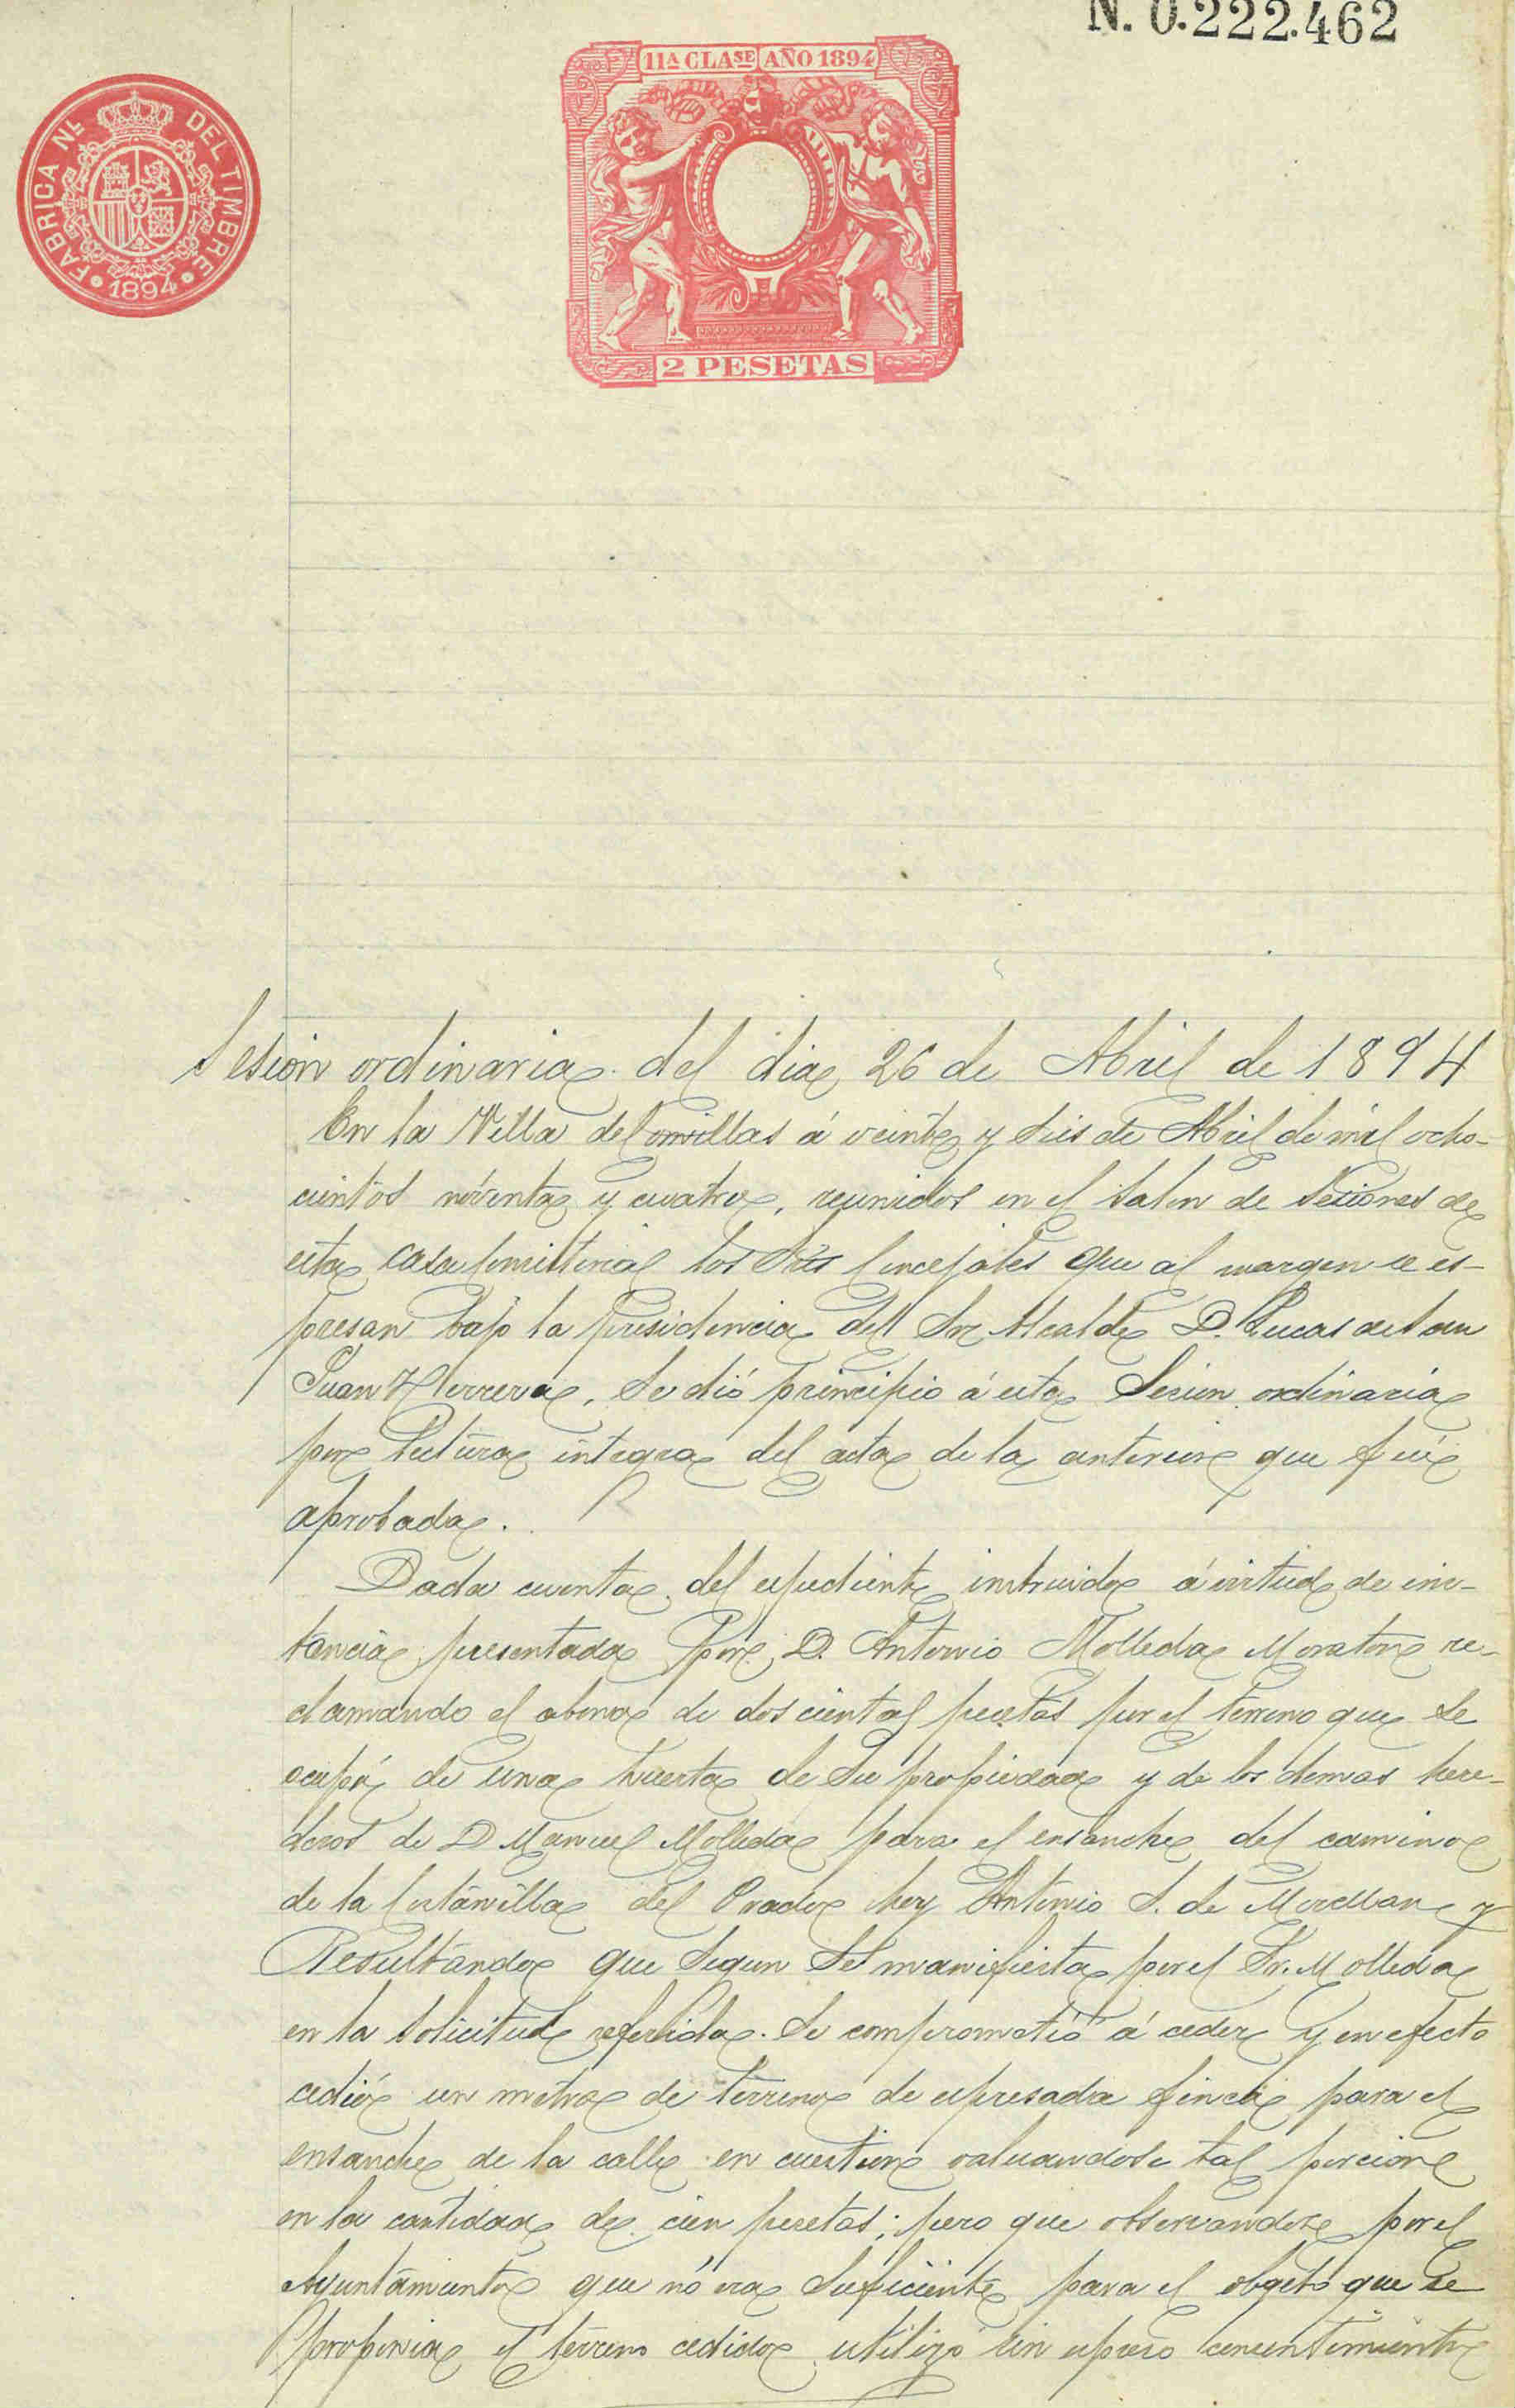 N. 0.222.462
11ª CLASE AÑO 1894
FABRICA NL. DEL TIMBRE
1894
2 PESETAS
Sesion ordinaria del dia 26 de Abril de 1894
En la Villa de Comillas á veinte y seis de Abril de mil ocho-
cientos noventa y cuatro, reunidos en el salon de sesiones de
esta casa Consistorial los Sres Concejales que al margen se es-
presan bajo la presidencia del Sor Alcalde D. Lucas de San
Juan Herrera, se dió principio á esta Sesion ordinaria
por lectura integra del acta de la anterior que fué
aprobada.
Dada cuenta del espediente instruido á virtud de ins-
tancia presentada por D. Antonio Molleda Morator re-
clamando el abono de doscientas pesetas por el terreno que se
ocupó de una huerta de su propiedad y de los demas here-
deros de D Manuel Molleda para el ensanche del camino
de la del Prado hoy Antonio S. de Movellan y
Resultando que segun se manifiesta por el Sr. Molleda
en la solicitud referida. Se comprometió á ceder y en efecto
cedió un metro de terreno de espresada finca para el
ensanche de la calle en cuestion valuandose tal porcion
en la cantidad de cien pesetas; pero que observandose por el
Ayuntamiento que nó era suficiente para el objeto que se
proponia el terreno cedido utilizó sin espreso consentimiento